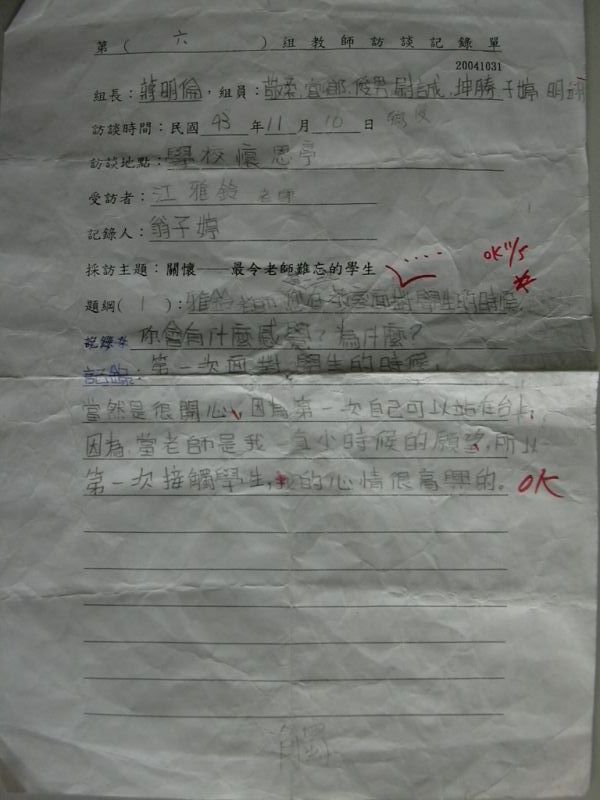 第（ 六 ）組教師訪談記錄單
20041031
組長：蔣明倫，組員：敬柔,宜郿,俊男,尉誠,坤勝,子婷,明
訪談時間：民國 93 年 11 月 10 日
訪談地點：學校懷恩亭
受訪者：江雅鈴 老師
記錄人：翁子婷
採訪主題：關懷──最令老師難忘的學生
OK 11/5
題綱( 1 )：雅鈴老師,您在教室面對學生的時候,
你會有什麼感覺?為什麼?
記錄：第一次面對學生的時候,
當然是很開心,因為第一次自己可以站在台上,
因為,當老師是我 小時候的願望,所以
第一次接觸學生,我的心情很高興的。OK
觸